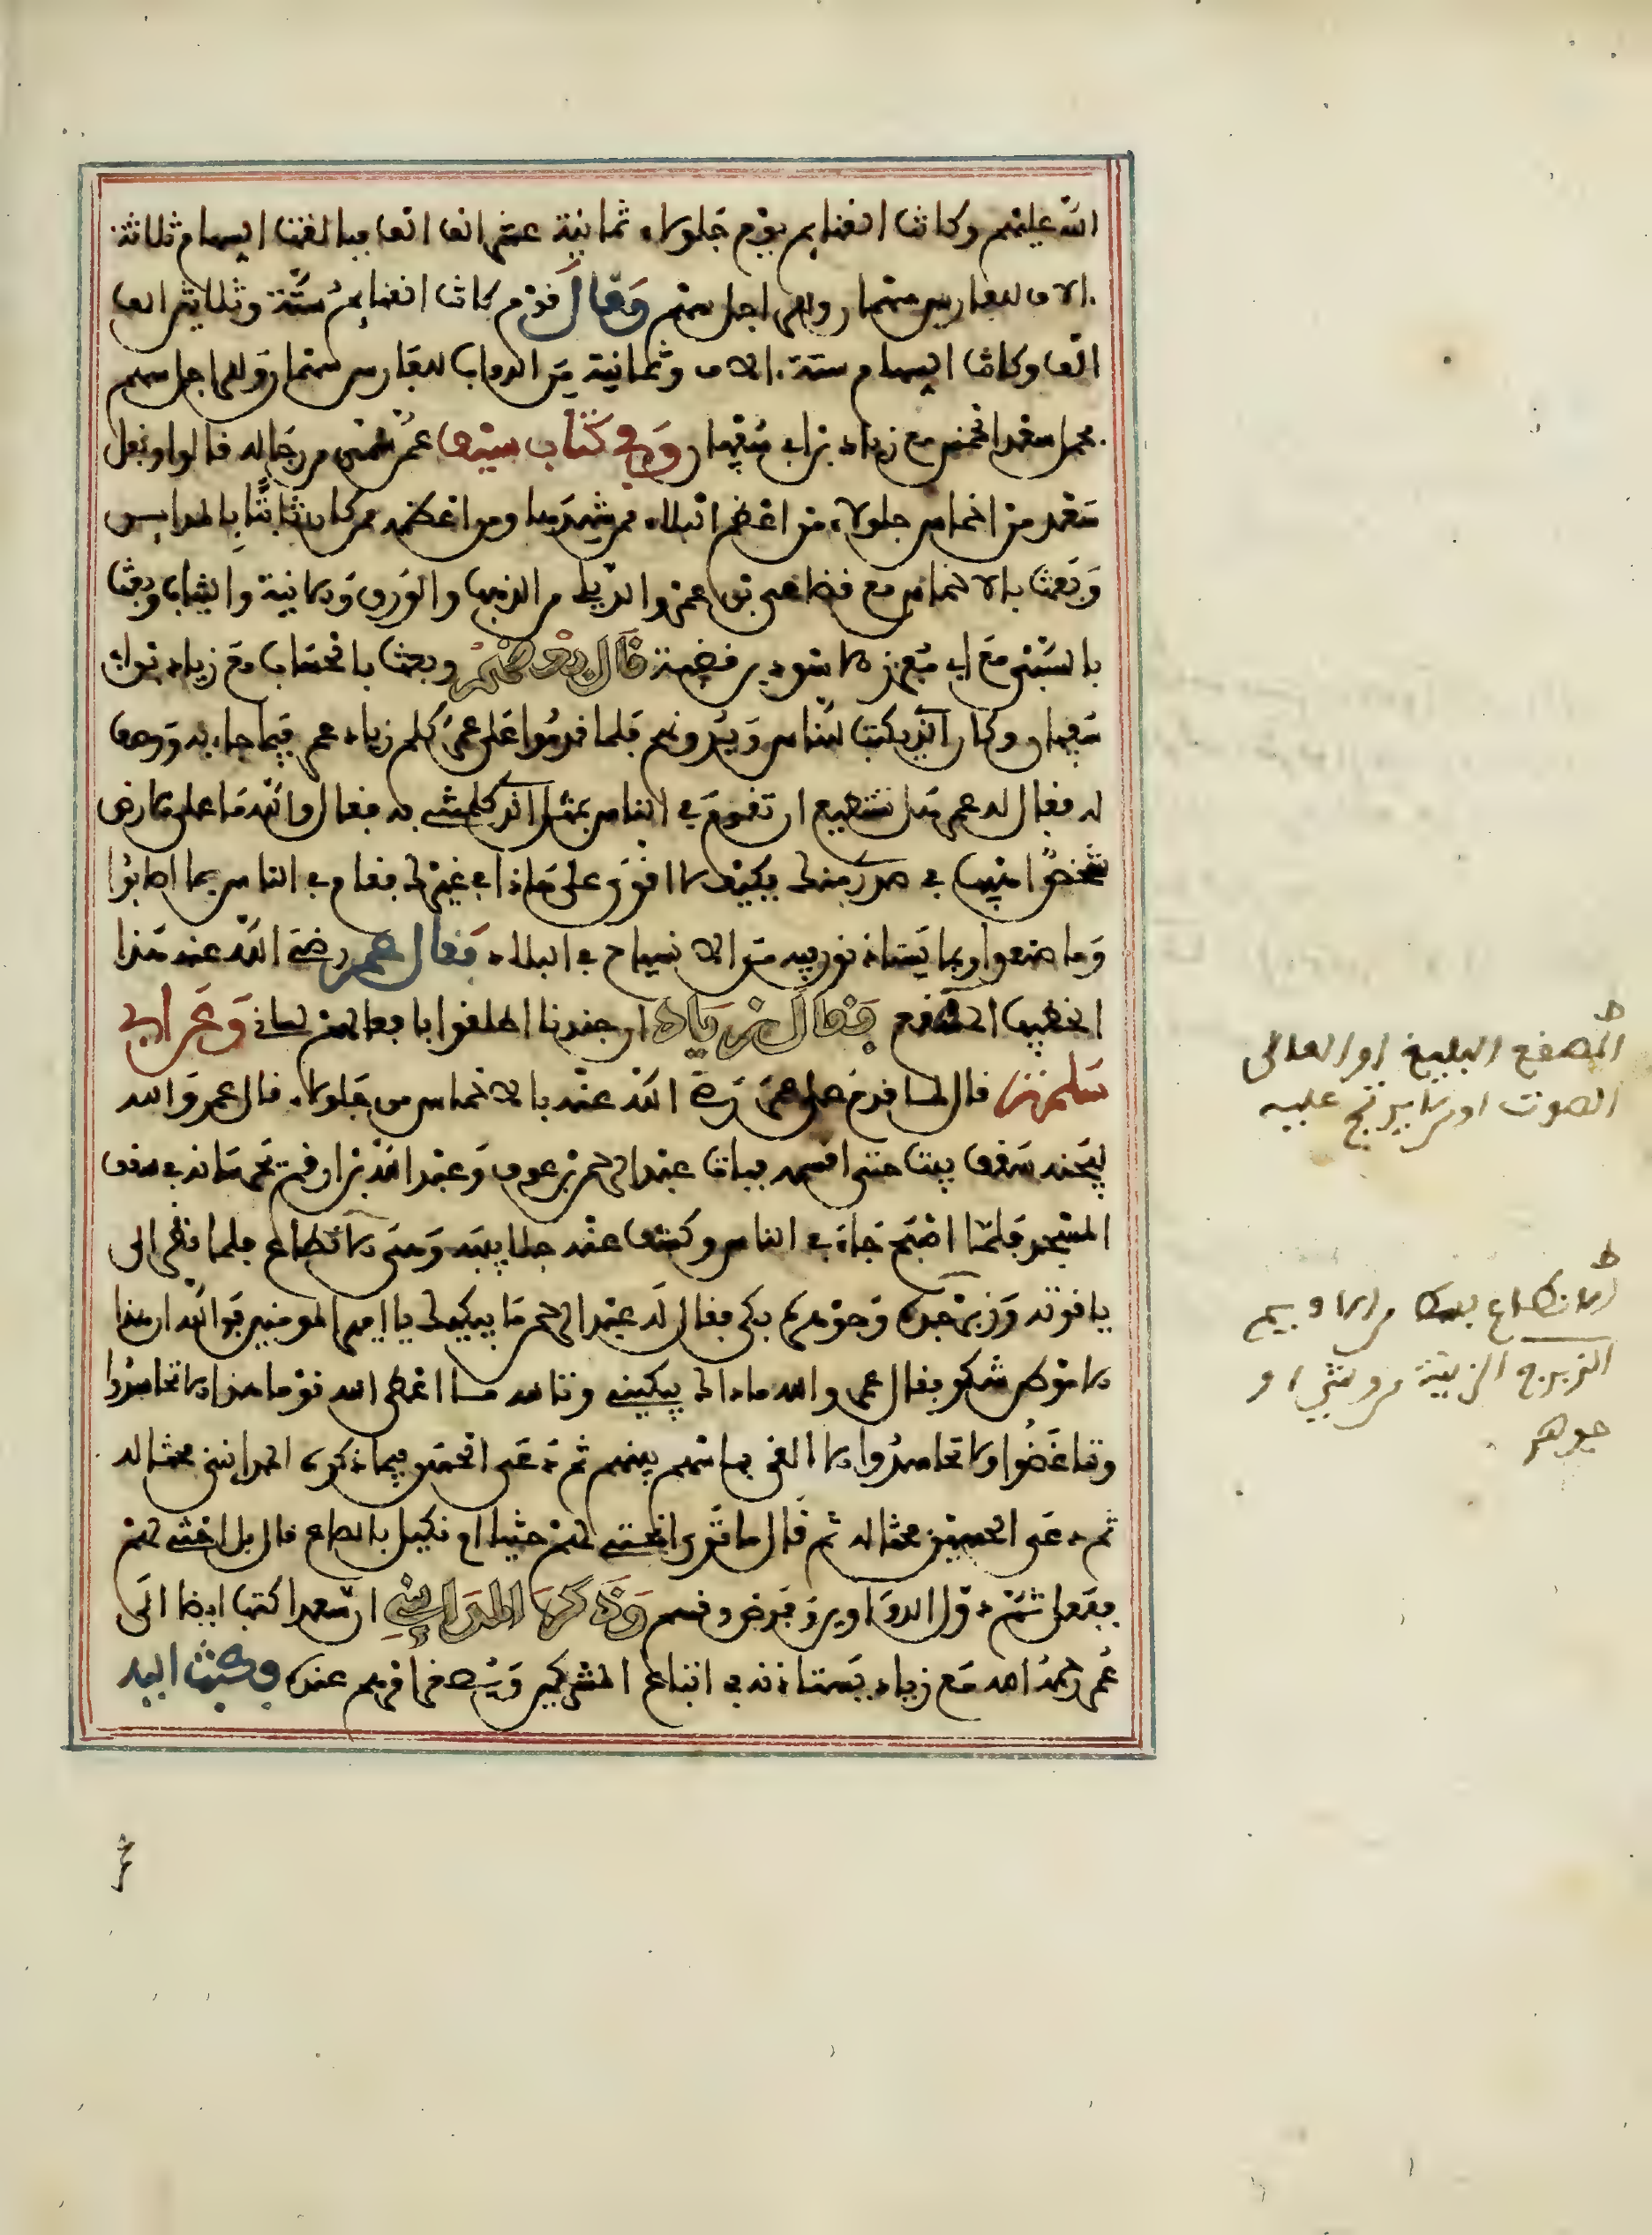 الله عليهم وكانت الغنايم يوم جلولاء ثمانية عشر الف الف فبالغت السهام ثلاثة
ءالاف للفارس منهما وللراجل سهم وَقال قوم كانت الغنايم ستة وثلاثين الف
الف وكانت السهام ستة ءالاف وثمانية من الدواب للفارس سهمان وللراجل سهم
فحمل سعد الخمس مع زياد بن ابي سفيان وفي كتاب سيف عمر عن رجاله قالوا ونفل
سعد من اخماس جلولاء من اعظم البلاء ممن شهدها ومن اعظم ممن كان نائيا بالمداين
وبعث بالاخماس مع قضاعي بن عمرو الديلي من الذهب والورق ودانية والثياب وبعث
بالسبي مع ابي مفزر الاسود بن قضبة قال بعضهم وبعث بالحساب مع زياد بن ابي
سفيان وكان الذي يكتب للناس ويدونهم فلما قدموا على عمر كلم زياد عمر فيما جاء به ووصف
له فقال له عمر هل تستطيع ان تقوم في الناس بمثل الذي كلمتني به فقال والله ما على الارض
شخص اهيب في صدري منك فكيف لا اقوى على هاذا في غيرك فقام في الناس بما اصابوا
وما صنعوا وبما يستاذنون فيه من الانسياح في البلاد فقال عمر رضي الله عنه هذا
الخطيب المصقع فقال زياد ان جندنا اطلقوا بالفعال لساني وعن ابي
سلمة قال لما قدم على عمر رضي الله عنه بالاخماس من جلولاء قال عمر والله
لا يجنه سقف بيت حتى اقسمه فبات عبد الرحمن بن عوف وعبد الله بن ارقم يحرسانه في سقف
المسجد فلما اصبح جاء في الناس وكشف عنه جلابيبه وهي الانطاع فلما نظر الى
ياقوته وزبرجده وجوهره بكى فقال له عبد الرحمن ما يبكيك يا امير المومنين فوالله ان هذا
لا موطن شكر فقال عمر والله ما ذاك يبكيني وتالله ما اعطى الله قوما هذا الا تحاسدوا
وتباغضوا ولا تحاسدوا الا القى باسهم بينهم ثم دعى الحسن فيما ذكره المدايني فحثا له
ثم دعى الحسين فحثا له ثم قال ما ترى انحثي لهم حثيا ام نكيل بالصاع قال بل احثي لهم
ففعل ثم دون الدواوين وفرض وقسم وذكر المدايني ان سعدا كتب ايضا الى
عمر رحمه الله مع زياد يستاذنه في اتباع المشركين عنده فكتب اليه
المصقع البليغ او العالى
الصوت او من لا يرتج عليه
الانطاع بسط من الاديم
الزبرج الزينة من وشي او
جوهر